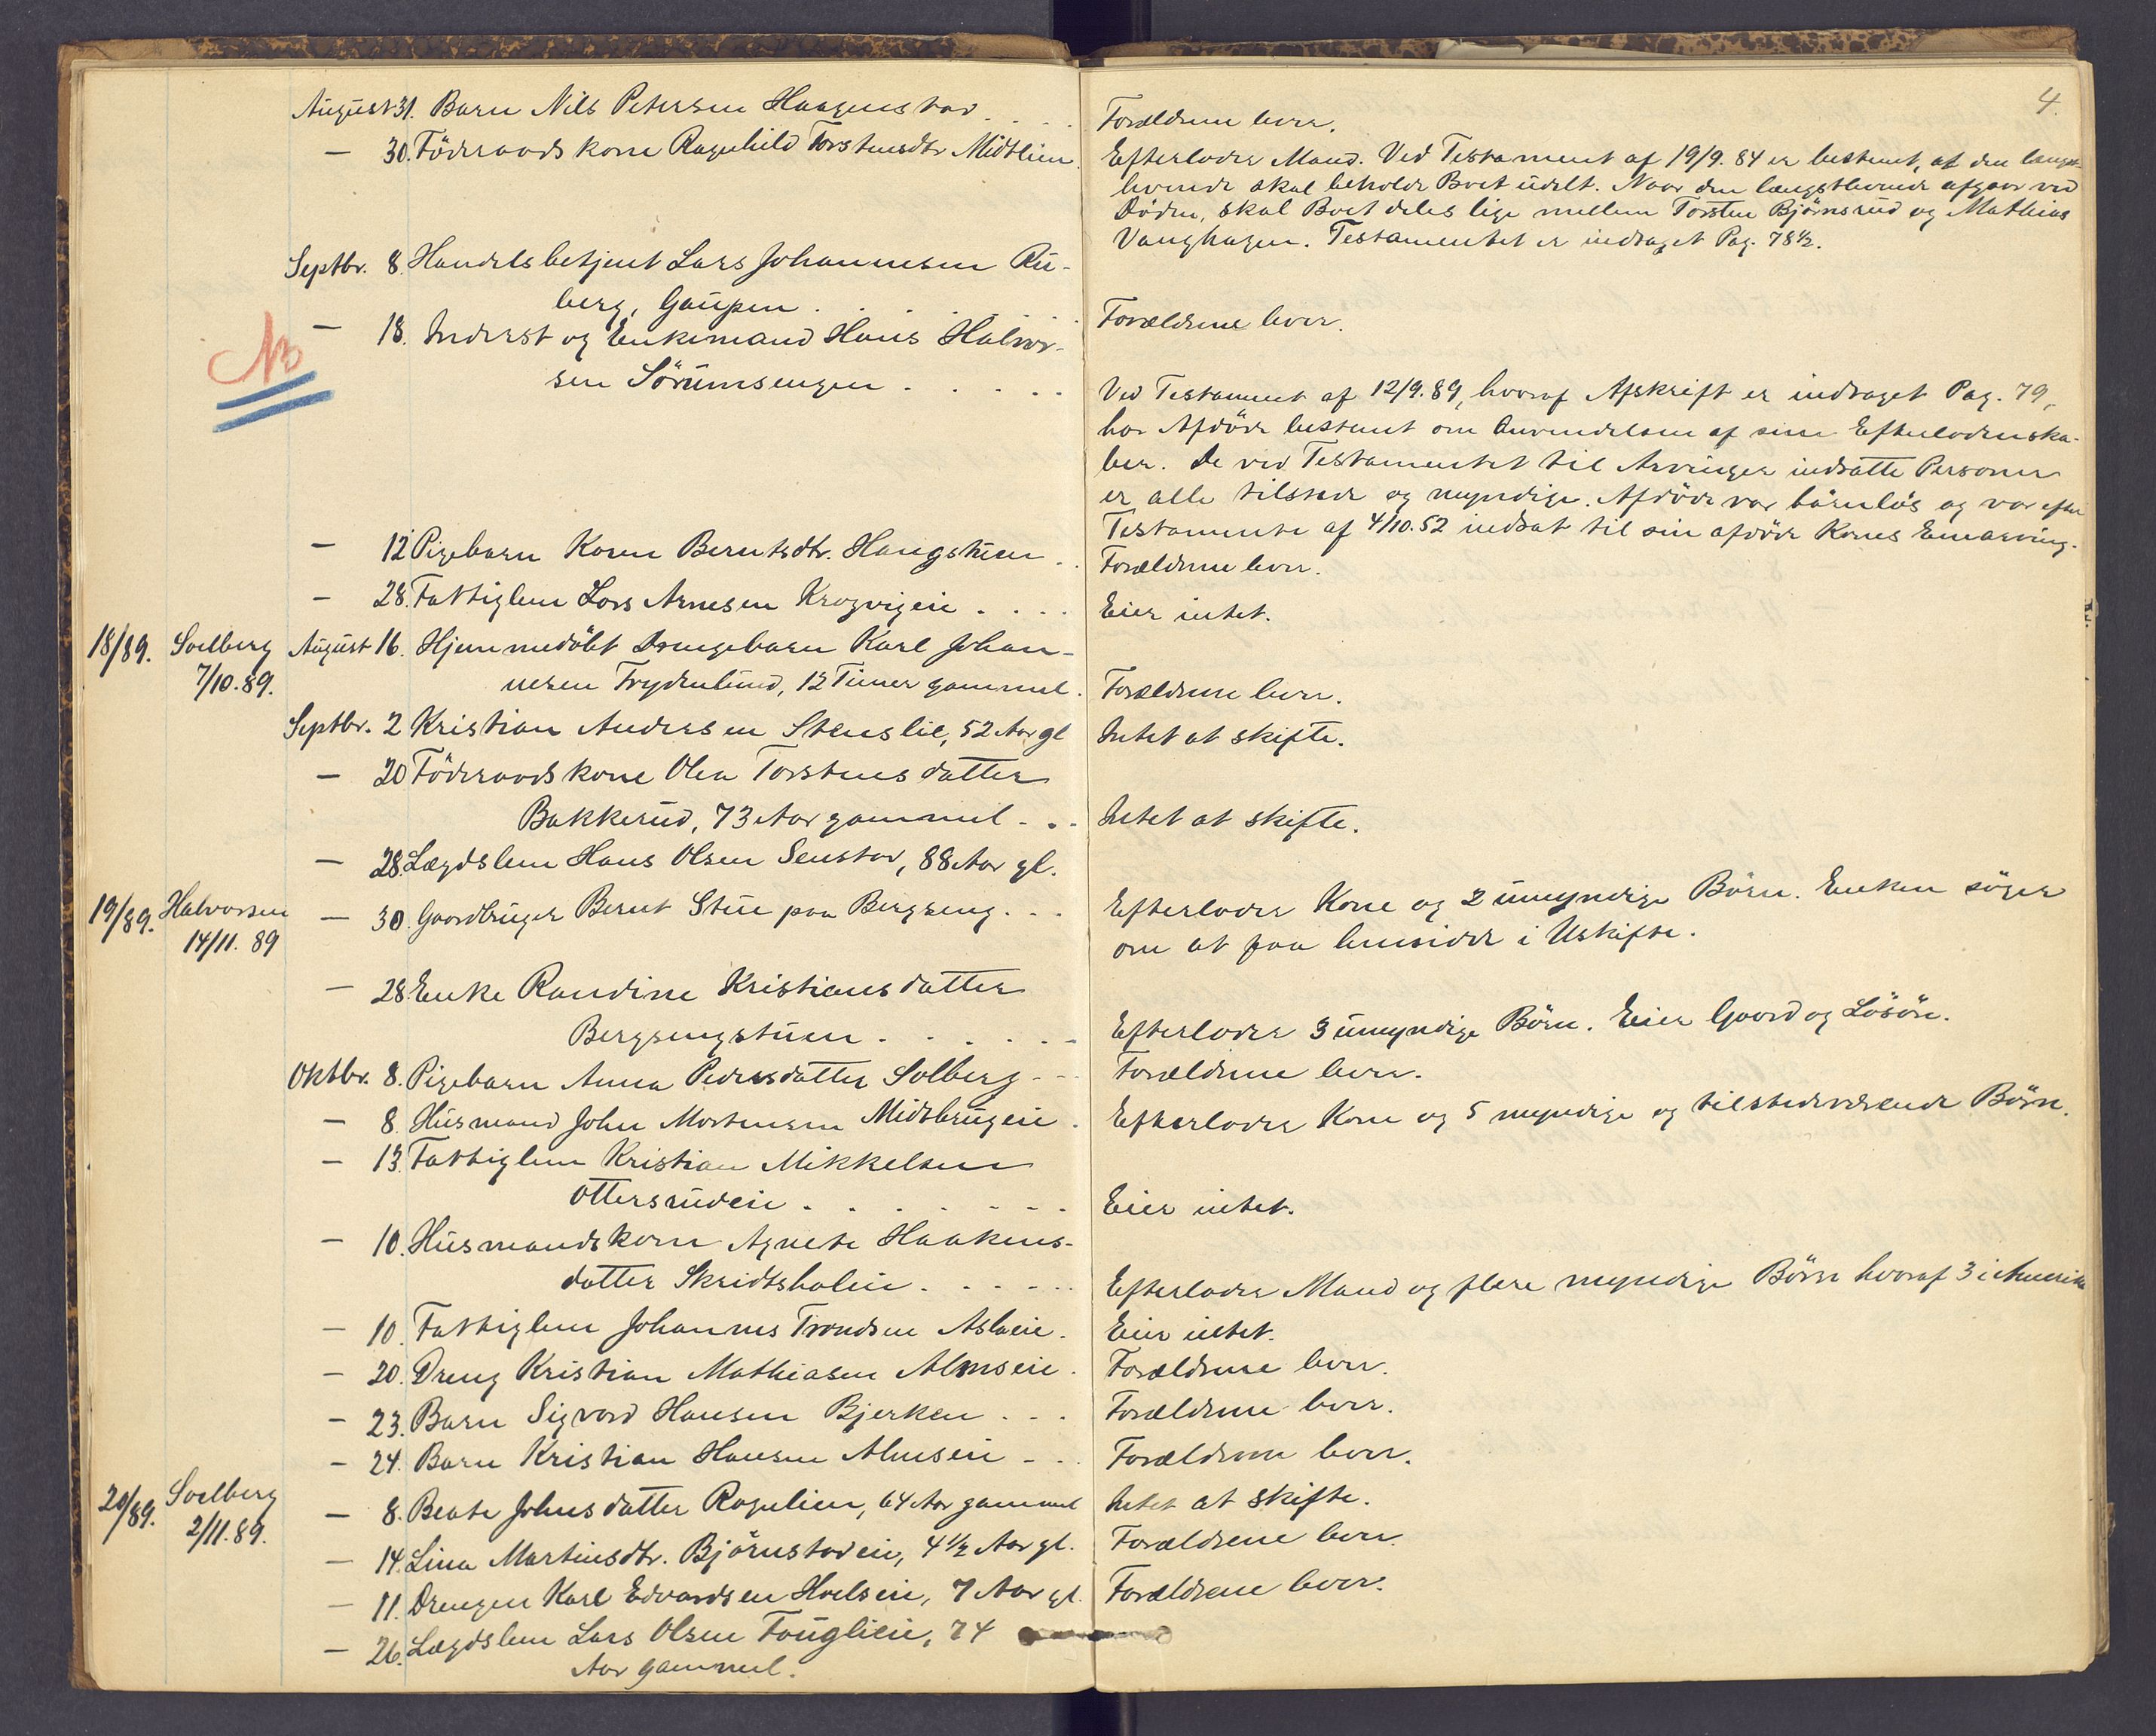 4.
August 31. Barn Nils Petersen Haagenstad . . . Forældrene lever.
— 30. Föderaadskone Ragnhild Torstensdtr Midtlien. Efterlader Mand. Ved Testament af 19/9. 84 er bestemt, at den længst-
levende skal beholde Boet udelt. Naar den længstlevende afgaar ved
Döden, skal Boet deles lige mellem Torsten Björnsrud og Mathias
Vanghagen. Testamentet er indtaget Pag. 78½.
Septbr. 8. Handelsbetjent Lars Johannesen Ru-
berg, Gaupen . . . . . Forældrene lever.
NB
— 18. Inderst og Enkemand Hans Halvor-
sen Sörumsengen . . . . . Ved Testament af 12/9. 89, hvoraf Afskrift er indtaget Pag. 79,
har Afdöde bestemt om Anvendelsen af sine Efterladenska-
ber. De ved Testamentet til Arvinger indsatte Personer
er alle tilstede og myndige. Afdöde var barnlös og var efter
Testamente af 4/10. 52 indsat til sin afdöde Kones Enearving.
— 12 Pigebarn Karen Berntsdtr. Haugstuen . . Forældrene lever.
— 28. Fattiglem Lars Arnesen Krogvigeie . . . . Eier intet.
18/89. Soelberg 7/10. 89. August 16. Hjemmedöbt Drengebarn Karl Johan-
nesen Frydenlund, 12 Timer gammel. Forældrene lever.
Septbr. 2 Kristian Andersen Stenslie, 52 Aar gl Intet at skifte.
— 20 Föderaadskone Olea Torstensdatter
Bakkerud, 73 Aar gammel . . . Intet at skifte.
— 28. Lægdslem Hans Olsen Senstad, 88 Aar gl.
19/89. Halvorsen 14/11. 89 — 30. Gaardbruger Bernt Stue paa Bergseng . . . Efterlader Kone og 2 umyndige Börn. Enken söger
om at faa hensidde i Uskifte.
— 28. Enke Randine Kristiansdatter
Bergsengstuen . . . . . . Efterlader 3 umyndige Börn. Eier Gaard og Lösöre.
Oktbr. 8. Pigebarn Anna Pedersdatter Solberg . . . Forældrene lever.
— 8. Husmand John Mortensen Midtbrugeie . Efterlader Kone og 5 myndige og tilstedeværende Börn.
— 13. Fattiglem Kristian Mikkelsen
Ottersrudeie . . . . . . . Eier intet.
— 10. Husmandskone Agnete Haakens-
datter Skridtsholeie . . . . . Efterlader Mand og flere myndige Börn hvoraf 3 i Amerika
— 10. Fattiglem Johannes Trondsen Asbeie. Eier intet.
— 20. Dreng Kristian Mathiasen Almseie . Forældrene lever.
— 23. Barn Sigvard Hansen Bjerken . . . Forældrene lever.
— 24. Barn Kristian Hansen Almseie . . . Forældrene lever.
20/89. Soelberg 2/11. 89. — 8. Beate Johnsdatter Rognlien, 64 Aar gammel Intet at skifte.
— 14. Lina Martinsdtr. Björnstadeie, 4½ Aar gl. Forældrene lever.
— 11. Drengen Karl Edvardsen Hoelseie, 7 Aar gl. Forældrene lever.
— 26. Lægdslem Lars Olsen Fouglieie, 74
Aar gammel.